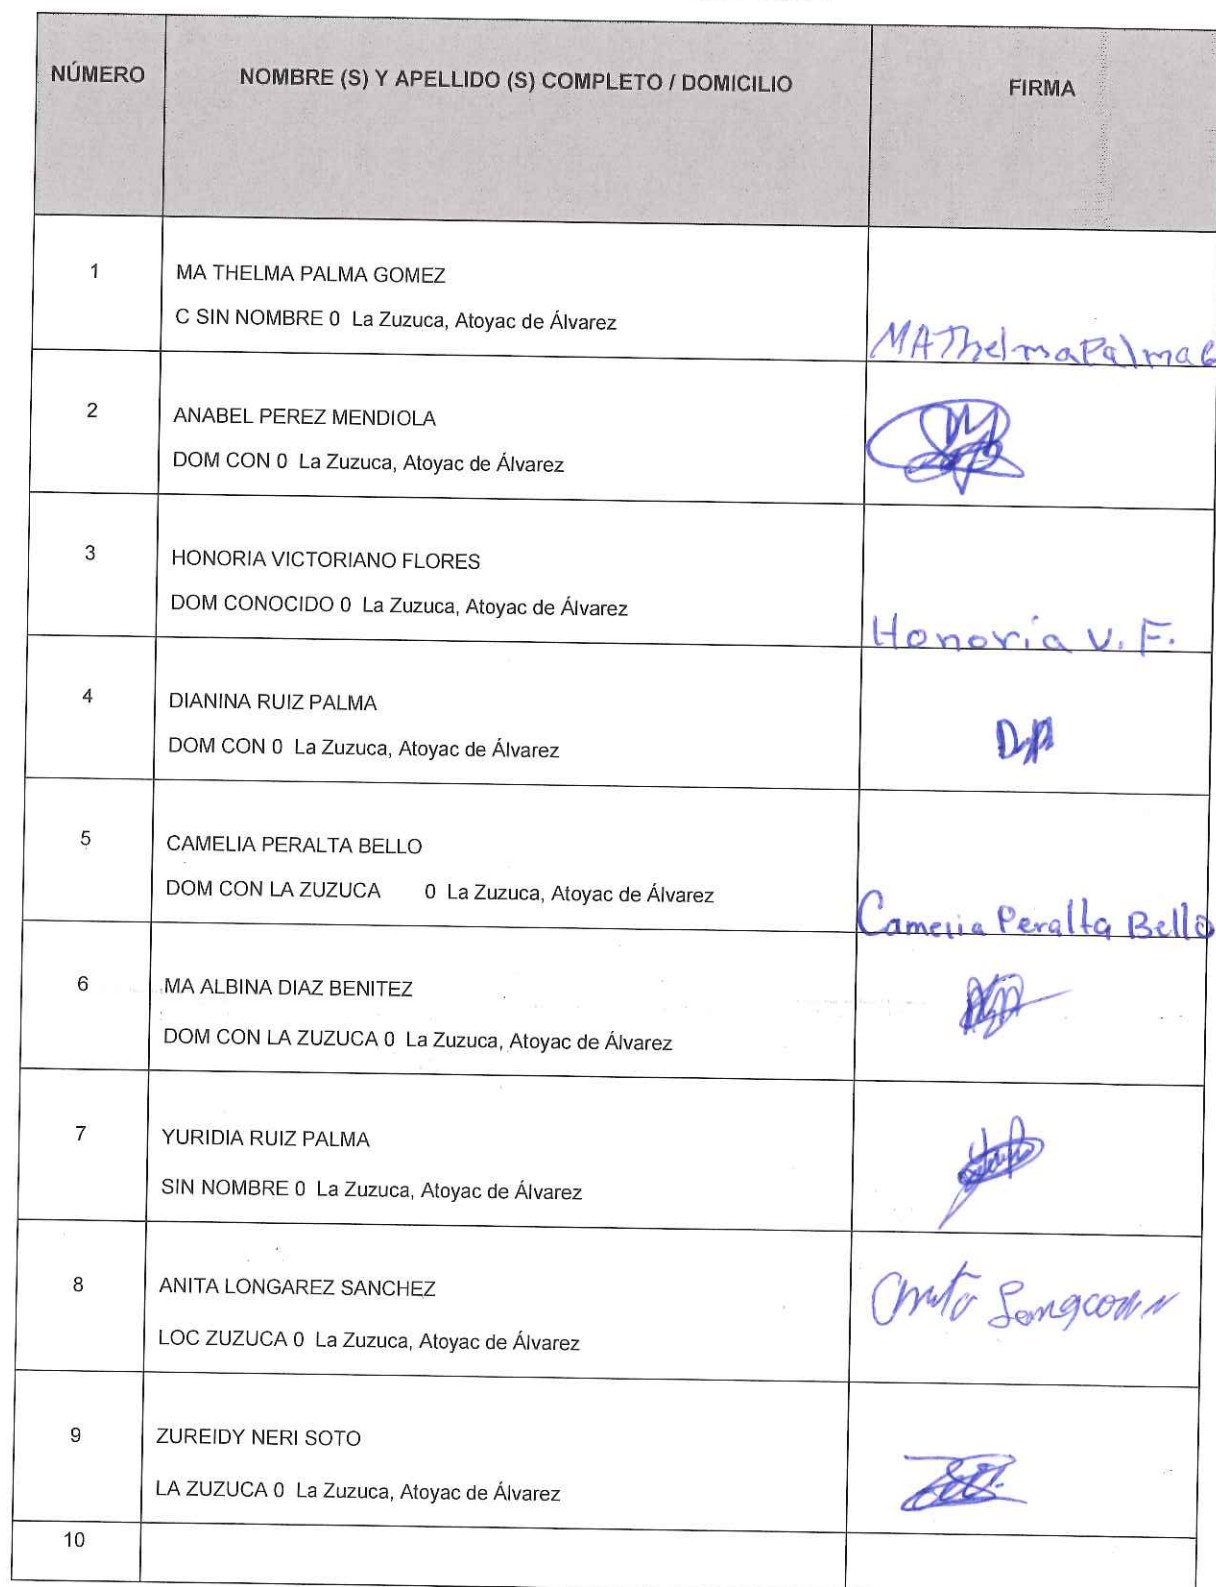 NÚMERO
NOMBRE (S) Y APELLIDO (S) COMPLETO / DOMICILIO
FIRMA
1
MA THELMA PALMA GOMEZ
C SIN NOMBRE 0 La Zuzuca, Atoyac de Álvarez
MAThelmaPalmaG
2
ANABEL PEREZ MENDIOLA
DOM CON 0 La Zuzuca, Atoyac de Álvarez
3
HONORIA VICTORIANO FLORES
DOM CONOCIDO 0 La Zuzuca, Atoyac de Álvarez
Honoria V. F.
4
DIANINA RUIZ PALMA
DOM CON 0 La Zuzuca, Atoyac de Álvarez
5
CAMELIA PERALTA BELLO
DOM CON LA ZUZUCA 0 La Zuzuca, Atoyac de Álvarez
Camelia Peralta Bello
6
MA ALBINA DIAZ BENITEZ
DOM CON LA ZUZUCA 0 La Zuzuca, Atoyac de Álvarez
7
YURIDIA RUIZ PALMA
SIN NOMBRE 0 La Zuzuca, Atoyac de Álvarez
8
ANITA LONGAREZ SANCHEZ
LOC ZUZUCA 0 La Zuzuca, Atoyac de Álvarez
9
ZUREIDY NERI SOTO
LA ZUZUCA 0 La Zuzuca, Atoyac de Álvarez
10